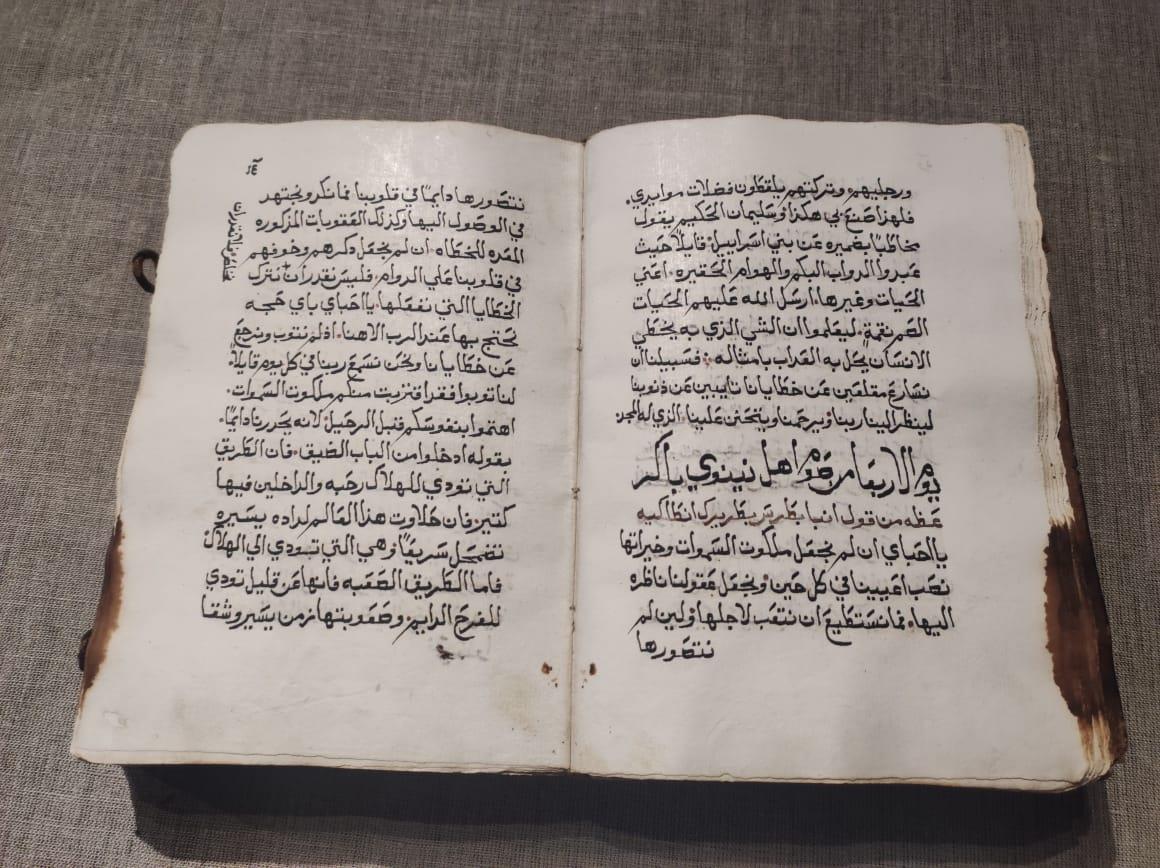 ورجليهم وتركتهم يلقطون فضلات موايدي.
فلهذا صنع بي هكذا وسليمان الحكيم يقول
مخاطبًا بضميره عن بني اسراييل قايلًا حيث
عبدوا الدواب البكم والهوام الحقيره اعني
الحيات وغيرها ارسل الله عليهم الحيات
الصم نقمة ليعلموا ان الشي الذي به يخطي
الانسان يحل به العداب بامثاله فسبيلنا ان
نسارع مقلعين عن خطايانا تايبين عن ذنوبنا
لينظر الينا ربنا ويرحمنا ويتحنن علينا الذي له المجد
يوم الاربعا من صوم اهل نينوي باكر
عظه من قول انبا بطرس بطريرك انطاكيه
يا احباي ان لم نجعل ملكوت السموات وخيراتها
نصب اعيينا في كل حين ونجعل عقولنا ناظره
اليها فما نستطيع ان نتعب لاجلها ولين لم
نتصورها
١٤
نتصورها دايمًا في قلوبنا فما نكد ونجتهد
في الوصول اليها وكذلك العقوبات المذكوره
المعده للخطاه ان لم نجعل ذكرهم وخوفهم
في قلوبنا علي الدوام فليس نقدر ان نترك
الخطايا التي نفعلها يا احباي باي حجه
نحتج بها عند الرب الاهنا اذ لم نتوب ونرجع
عن خطايانا ونحن نسمع ربنا في كل يوم قايلًا
لنا توبوا فقد اقتربت منكم ملكوت السموات
اهتموا بنفوسكم قبل الرحيل لانه يحدرنا دايمًا
بقوله ادخلوا من الباب الضيق فان الطريق
التي تودي للهلاك رحبه والداخلين فيها
كتير فان حلاوت هذا العالم لداده يسيره
تضمحل سريعًا وهي التي تودي الي الهلاك
فاما الطريق الصعبه فانها عن قليل تودي
للفرح الدايم وصعوبتها زمن يسير وشقا